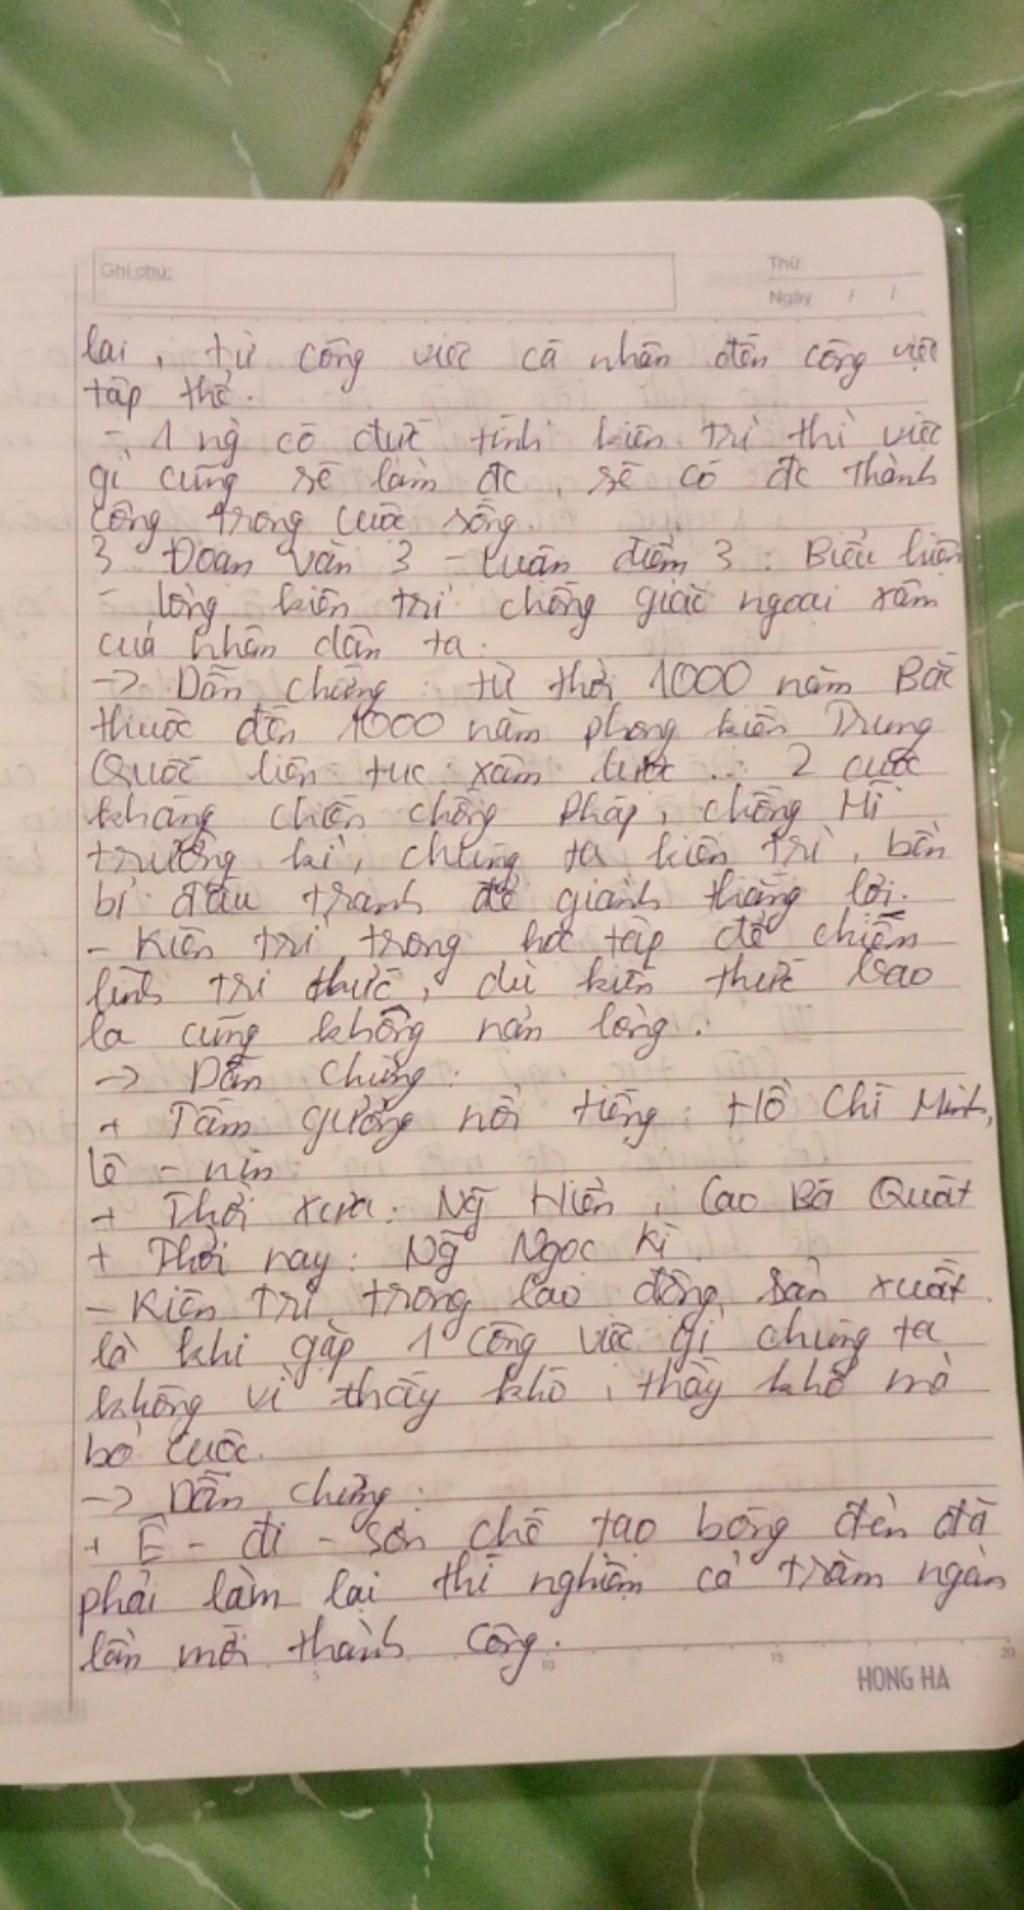 Ghi chú:
Thứ
Ngày / /
lai, từ công việc cá nhân đến công việc
tập thể.
- 1 ng có đức tính kiên trì thì việc
gì cũng sẽ làm đc, sẽ có đc thành
công trong cuộc sống.
3 Đoạn văn 3 - Luận điểm 3: Biểu hiện
- lòng kiên trì chống giặc ngoại xâm
của nhân dân ta.
-> Dẫn chứng: từ thời 1000 năm Bắc
thuộc đến 1000 năm phong kiến Trung
Quốc liên tục xâm lược... 2 cuộc
kháng chiến chống Pháp, chống Mĩ
trường kì, chúng ta kiên trì, bền
bỉ đấu tranh để giành thắng lợi.
- Kiên trì trong học tập để chiếm
lĩnh tri thức, dù kiến thức bao
la cũng không nản lòng.
-> Dẫn chứng:
+ Tấm gương nổi tiếng: Hồ Chí Minh,
Lê - nin
+ Thời xưa: Ng~ Hiền, Cao Bá Quát
+ Thời nay: Ng~ Ngọc Kí.
- Kiên trì trong lao động, sản xuất
là khi gặp 1 công việc gì chúng ta
không vì thấy khó, thấy khổ mà
bỏ cuộc.
-> Dẫn chứng:
+ Ê - đi - sơn chế tạo bóng đèn đã
phải làm lại thí nghiệm cả trăm ngàn
lần mới thành công.
5 10 15 20
HONG HA